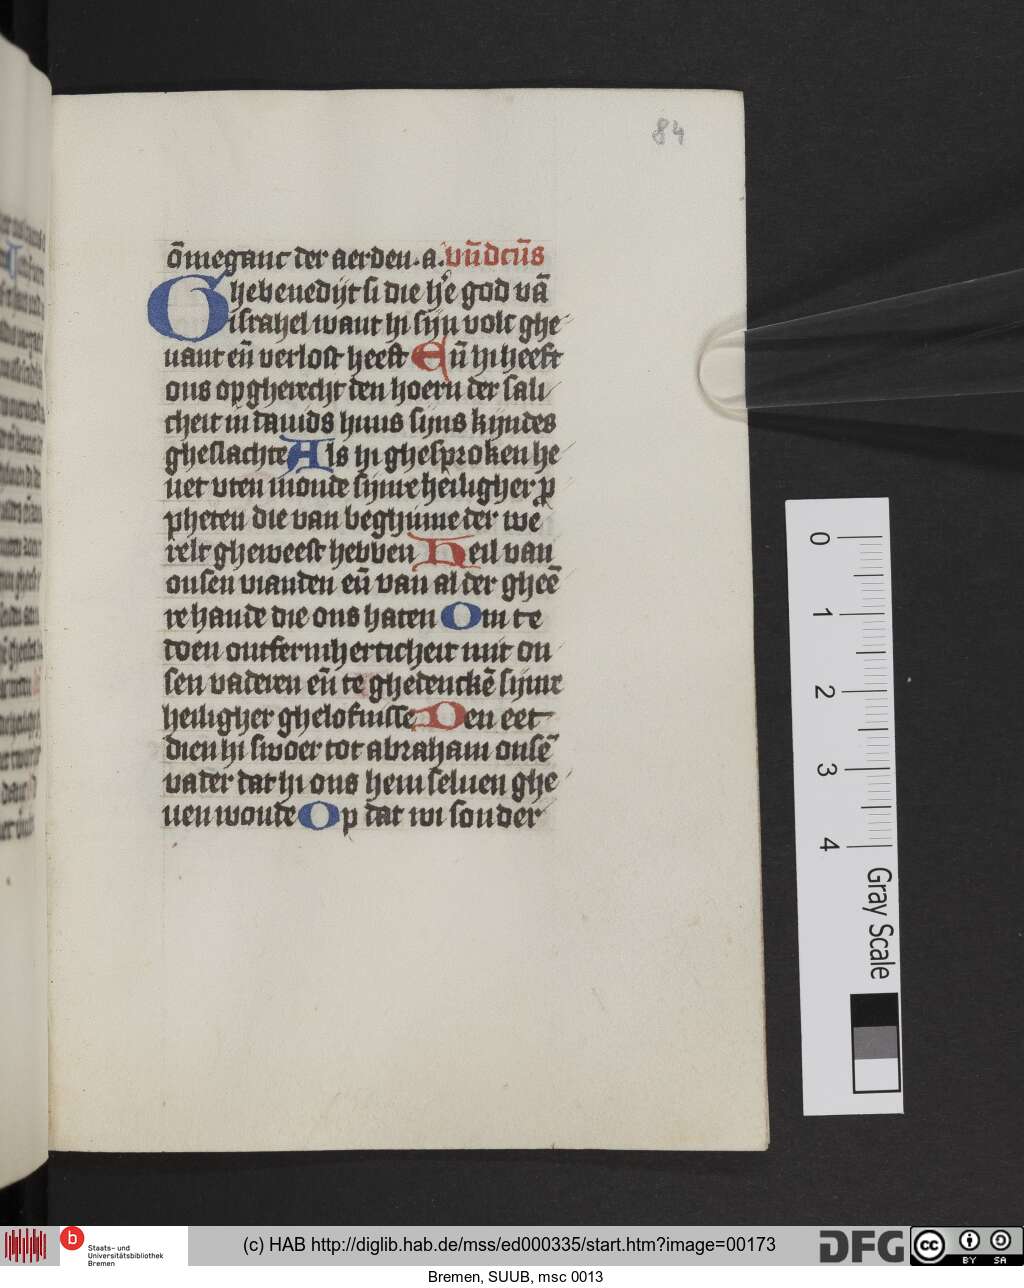 84
ōmeganc der aerden. a. bn̄dcūs
Ghebenedijt si die he god vā
israhel want hi sijn volc ghe
uant en̄ verlost heeft En̄ hi heeft
ons opgherecht den hoern der sali
cheit in dauids huus sijns kijndes
gheslachte Als hi ghesproken he
uet vten monde sijnre heiligher p
pheten die van beghinne der we
relt gheweest hebben Heil van
onsen vianden en̄ van al der gheē
re hande die ons haten Om te
doen ontfermherticheit mit on
sen vaderen en̄ te ghedenckē sijnre
heiligher ghelofnisse Den eet
dien hi swoer tot abraham onsē
vader dat hi ons hem seluen ghe
uen woude Op dat wi sonder
0
1
2
3
4
Gray Scale
b
Staats- und
Universitätsbibliothek
Bremen
(c) HAB http://diglib.hab.de/mss/ed000335/start.htm?image=00173
DFG
cc
BY SA
Bremen, SUUB, msc 0013